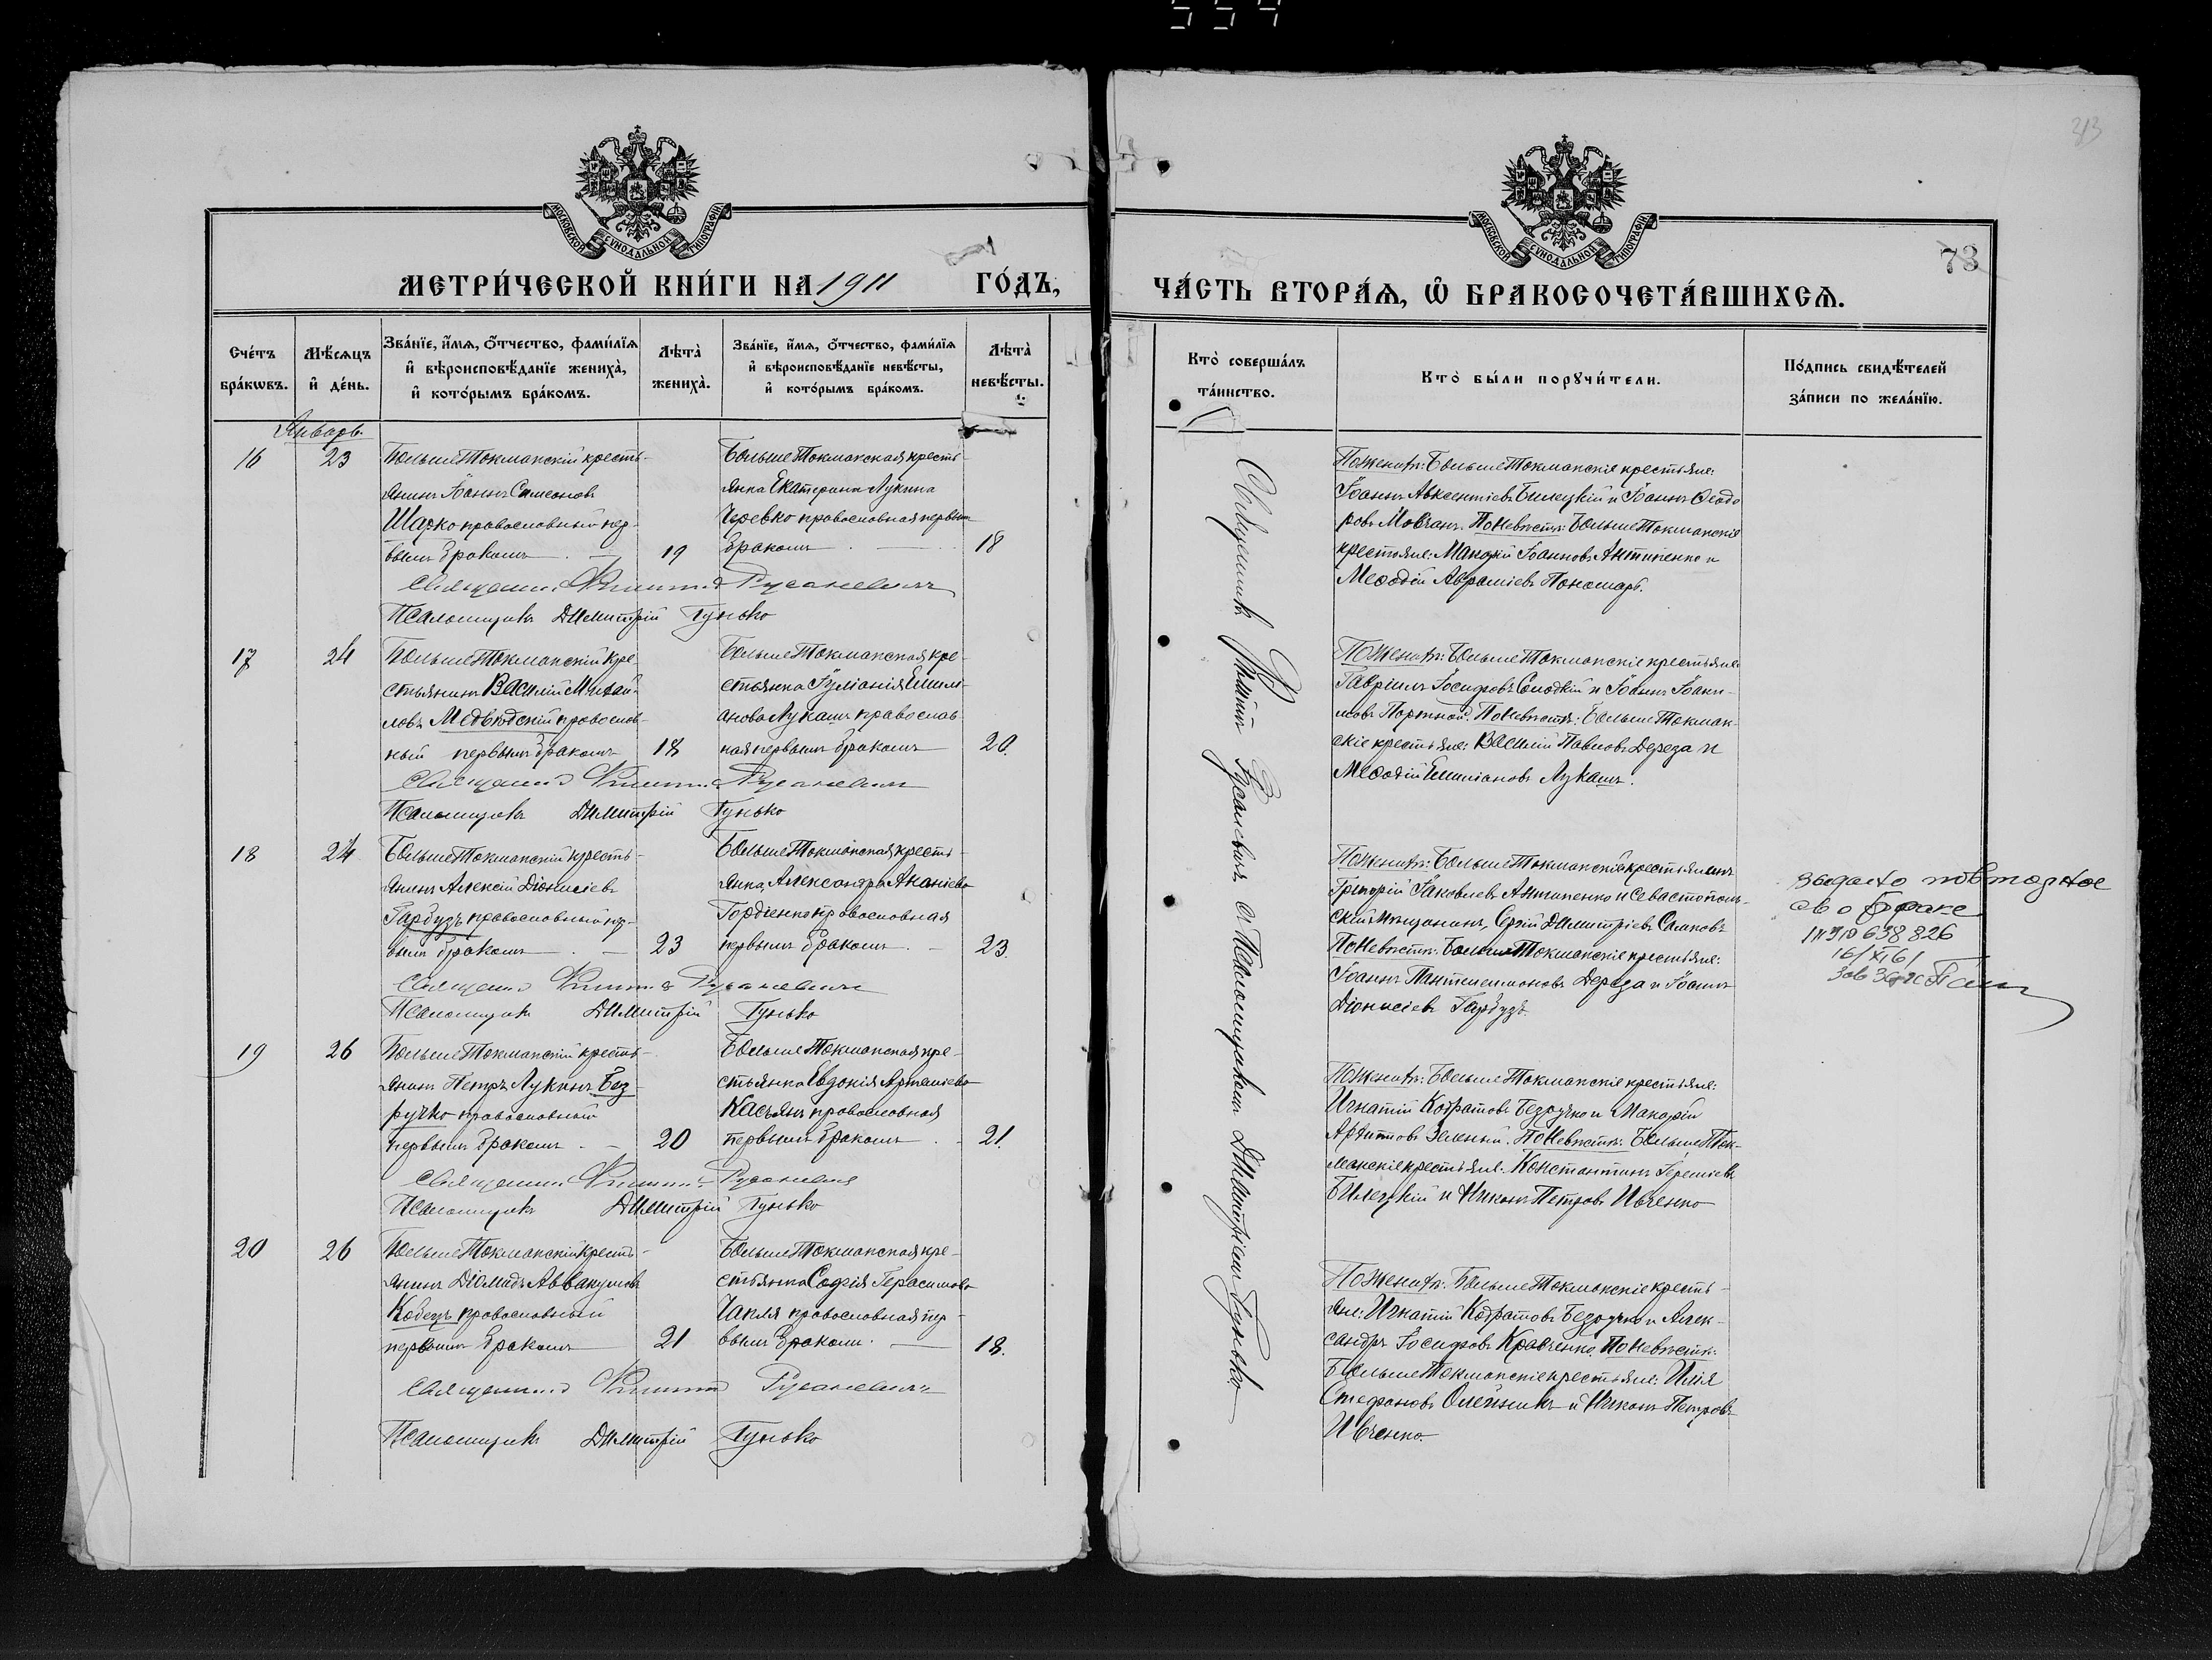 554
313
73
МОСКОВСКОЙ СУНОДАЛЬНОЙ ТИПОГРАФІИ
МЕТРИ́ЧЕСКОЙ КНИ́ГИ НА 1911 ГО́ДЪ,
Сче́тъ бра́кωвъ.
Мѣ́сѧцъ и҆ де́нь.
Зва́нїе, и҆́мѧ, ѻ҆́тчество, фами́лїѧ
и҆ вѣроисповѣ́данїе жениха̀,
и҆ кото́рымъ бра́комъ.
Лѣта̀ жениха̀.
Зва́нїе, и҆́мѧ, ѻ҆́тчество, фами́лїѧ
и҆ вѣроисповѣ́данїе невѣ́сты,
и҆ кото́рымъ бра́комъ.
Лѣта̀ невѣ́сты.
Январь.
16
23
БольшеТокмакскій кресть-
янинъ Іоаннъ Симеоновъ
Шарко православный пер-
вымъ бракомъ
19
БольшеТокмакская кресть-
янка Екатерина Лукина
Черевко православная первым
бракомъ
18
Священникъ Русаневичъ
Псаломщикъ Димитрій Гунько
17
24
БольшеТокмакскій кре-
стьянинъ Василій Михай-
ловъ Медвѣдскій православ-
ный первымъ бракомъ
18
БольшеТокмакская кре-
стьянка Іуліанія Емили-
анова Лукашъ православ-
ная первымъ бракомъ
20.
Священникъ Русаневичъ
Псаломщикъ Димитрій Гунько
18
24
БольшеТокмакскій кресть-
янинъ Алексій Діонисіевъ
Гарбузъ православный пер-
вымъ бракомъ
23
БольшеТокмакская кресть-
янка, Александра Ананіева
Гордіенко православная
первымъ бракомъ
23.
Священникъ Русаневичъ
Псаломщикъ Димитрій Гунько
19
26
БольшеТокмакскій кресть-
янинъ Петръ Лукинъ Без-
ручко православный
первымъ бракомъ
20
БольшеТокмакская кре-
стьянка Евдокія Артеміева
Касьянъ православная
первымъ бракомъ
21.
Священникъ Русаневичъ
Псаломщикъ Димитрій Гунько
20
26
БольшеТокмакскій кресть-
янинъ Діомидъ Аввакумовъ
Кобецъ православный
первымъ бракомъ
21
БольшеТокмакская кре-
стьянка Софія Герасимова
Чапля православная пер-
вымъ бракомъ
18.
Священникъ Русаневичъ
Псаломщикъ Димитрій Гунько
МОСКОВСКОЙ СУНОДАЛЬНОЙ ТИПОГРАФІИ
ЧА́СТЬ ВТОРА́Ѧ, Ѡ҆ БРАКОСОЧЕТА́ВШИХСѦ.
Кто̀ соверша́лъ та́инство.
Кто̀ бы́ли порꙋчи́тели.
По́дпись свидѣ́телей за́писи по жела́нїю.
Священникъ Русаневичъ съ Псаломщикомъ Димитріемъ Гунько
По женихѣ: БольшеТокмакскіе крестьяне:
Іоаннъ Авксентіевъ Билецкій и Іоаннъ Ѳеодо
ровъ Мовчанъ. По невѣстѣ: БольшеТокмакскіе
крестьяне: Макарій Іоанновъ Антипенко и
Меѳодій Авраміевъ Пономарь.
По женихѣ: БольшеТокмакскіе крестьяне
Гавріилъ Іосифовъ Солодкій и Іоаннъ Іоан-
новъ Портной. По невѣстѣ: БольшеТокмак-
скіе крестьяне: Василій Павловъ Дереза и
Меѳодій Емиліановъ Лукашъ.
По женихѣ: БольшеТокмакскій крестьянинъ
Григорій Іаковлевъ Антипенко и Севастополь-
скій мѣщанинъ, Сергій Димитріевъ Салковъ
По невѣстѣ: БольшеТокмакскіе крестьяне:
Іоаннъ Пантелеимоновъ Дереза и Іоаннъ
Діонисіевъ Гарбузъ.
Выдано повторное
св о браке
638826
16/XI 61
Зав Загс
По женихѣ: БольшеТокмакскіе крестьяне:
Игнатій Кодратовъ Безручко и Макарій
Архиповъ Зеленый. По невѣстѣ: БольшеТок-
макскіе крестьяне: Константинъ Гереміевъ
Билецкій и Никонъ Петровъ Ивченко
По женихѣ: БольшеТокмакскіе кресть-
яне: Игнатій Кодратовъ Безручко и Алек-
сандръ Іосифовъ Кравченко. По невѣстѣ:
БольшеТокмакскіе крестьяне: Илія
Стефановъ Олейникъ и Никонъ Петровъ
Ивченко.